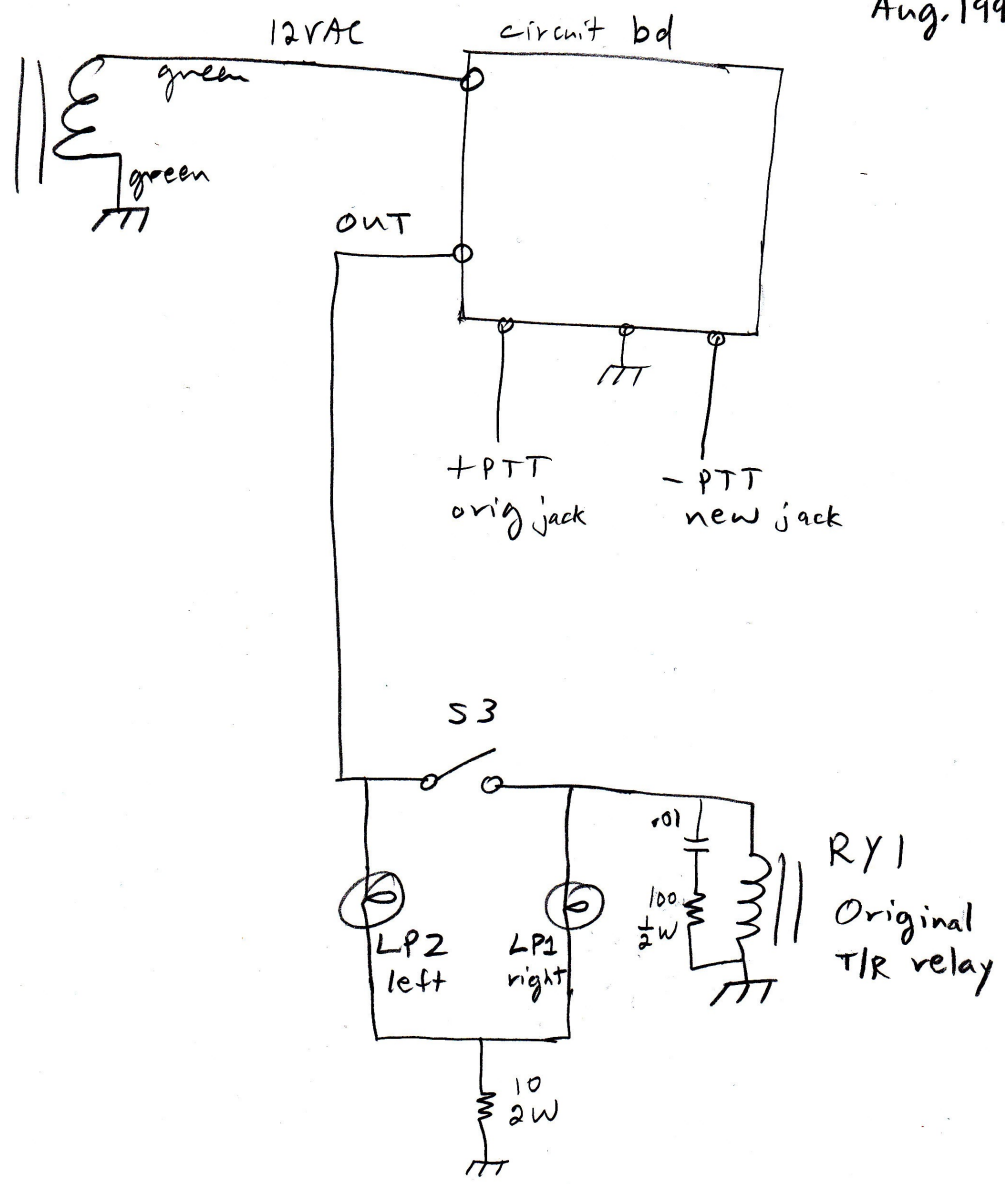 Aug. 199
12VAC
circuit bd
green
green
OUT
+PTT
orig jack
- PTT
new jack
S3
.01
100
1/2W
RY1
Original
T/R relay
LP2
left
LP1
right
10
2W